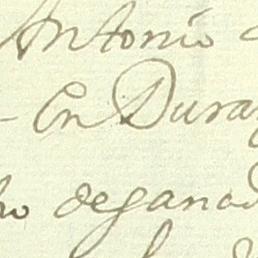 Antonio
En Duran
ho deganad